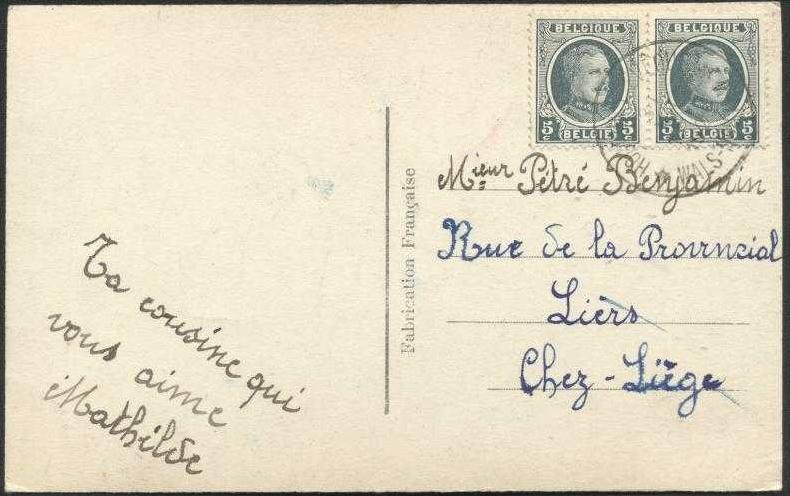 BELGIQUE BELGIQUE
5c 5c 5c 5c
BELGIË BELGIË
Mieur Pétré Benjamin
Rue de la Provincial
Liers
Chez-Liège
Fabrication Française
Ta cousine qui
vous aime
Mathilde